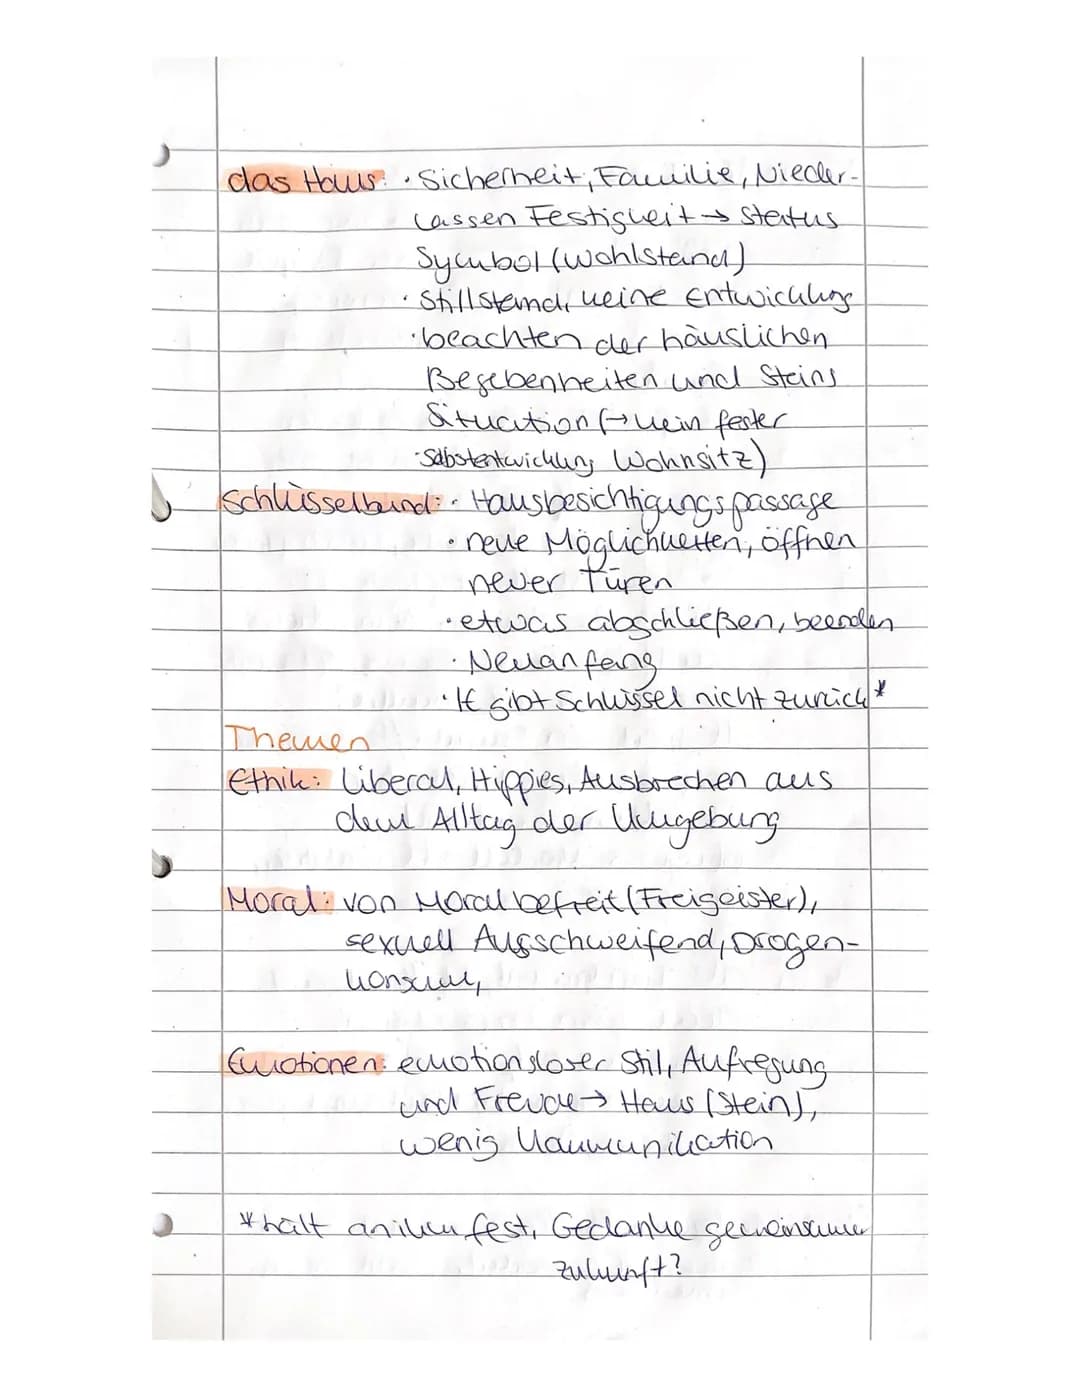 das Haus: · Sicherheit, Familie, Nieder-
lassen Festigkeit → Status
Symbol (Wohlstand)
· Stillstand, keine Entwicklung
· beachten der häuslichen
Begebenheiten und Steins
Situation (→ kein fester
· Selbstentwicklung Wohnsitz)
Schlüsselbund: · Hausbesichtigungspassage
· neue Möglichkeiten, öffnen
neuer Türen
· etwas abschließen, beenden
· Neuanfang
· IE gibt Schüssel nicht zurück *
Themen
Ethik: Liberal, Hippies, Ausbrechen aus
dem Alltag der Umgebung
Moral: von Moral befreit (Freigeister),
sexuell Ausschweifend, Drogen-
konsum,
Emotionen: emotionsloser Stil, Aufregung
und Freude → Haus (Stein),
wenig Kommunikation
* hält an ihm fest, Gedanke gemeinsamer
Zukunft?